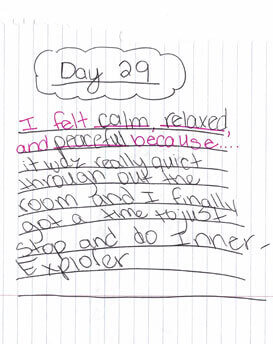 Day 29
I felt calm, relaxed,
and peaceful because....
it wuz really quict
through out the
room and I finally
got a time to just
stop and do Inner-
Explorer